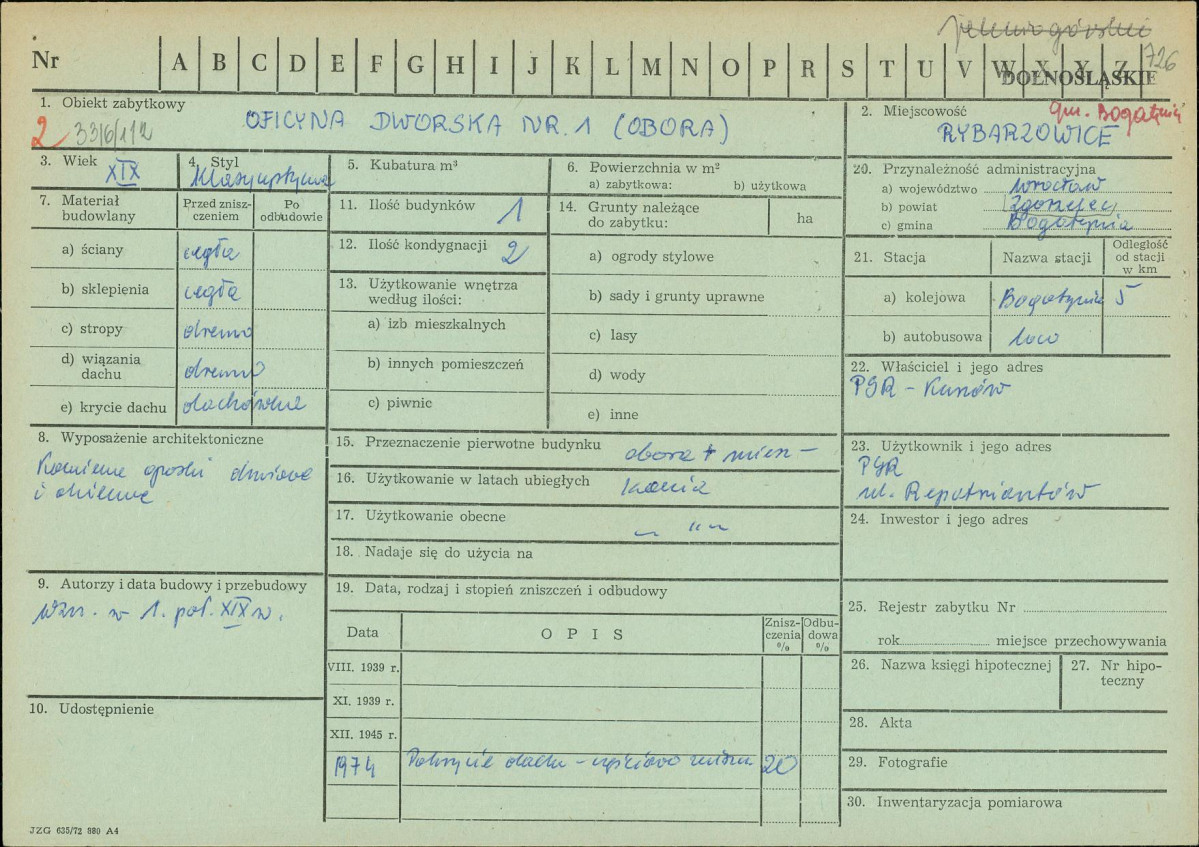 jeleniogórskie
726
Nr A B C D E F G H I J K L M N O P R S T U V W X Y Z
DOLNOŚLĄSKIE
1. Obiekt zabytkowy
2 3316/112
OFICYNA DWORSKA NR. 1 (OBORA)
2. Miejscowość
gm. Bogatynia
RYBARZOWICE
3. Wiek
XIX
4. Styl
klasycystyczny
5. Kubatura m³
6. Powierzchnia w m²
a) zabytkowa: b) użytkowa
20. Przynależność administracyjna
a) województwo Wrocław
b) powiat Zgorzelec
c) gmina Bogatynia
7. Materiał budowlany
Przed zniszczeniem
Po odbudowie
a) ściany cegła
b) sklepienia cegła
c) stropy drewno
d) wiązania dachu drewno
e) krycie dachu dachówka
11. Ilość budynków 1
12. Ilość kondygnacji 2
13. Użytkowanie wnętrza według ilości:
a) izb mieszkalnych
b) innych pomieszczeń
c) piwnic
14. Grunty należące do zabytku:
ha
a) ogrody stylowe
b) sady i grunty uprawne
c) lasy
d) wody
e) inne
21. Stacja
Nazwa stacji
Odległość od stacji w km
a) kolejowa Bogatynia 5
b) autobusowa loco
22. Właściciel i jego adres
PGR - Kunów
8. Wyposażenie architektoniczne
Kamienne opaski drzwiowe
i okienne
15. Przeznaczenie pierwotne budynku obora + miesz -
16. Użytkowanie w latach ubiegłych
17. Użytkowanie obecne – " –
18. Nadaje się do użycia na
23. Użytkownik i jego adres
PGR
ul. Repatriantów
24. Inwestor i jego adres
9. Autorzy i data budowy i przebudowy
wzn. w 1. poł. XIX w.
19. Data, rodzaj i stopień zniszczeń i odbudowy
Data
OPIS
Zniszczenia %
Odbudowa %
VIII. 1939 r.
XI. 1939 r.
XII. 1945 r.
1974 Pokrycie dachu - częściowo zniszcz 20
25. Rejestr zabytku Nr
rok miejsce przechowywania
26. Nazwa księgi hipotecznej
27. Nr hipoteczny
10. Udostępnienie
28. Akta
29. Fotografie
30. Inwentaryzacja pomiarowa
JZG 635/72 880 A4